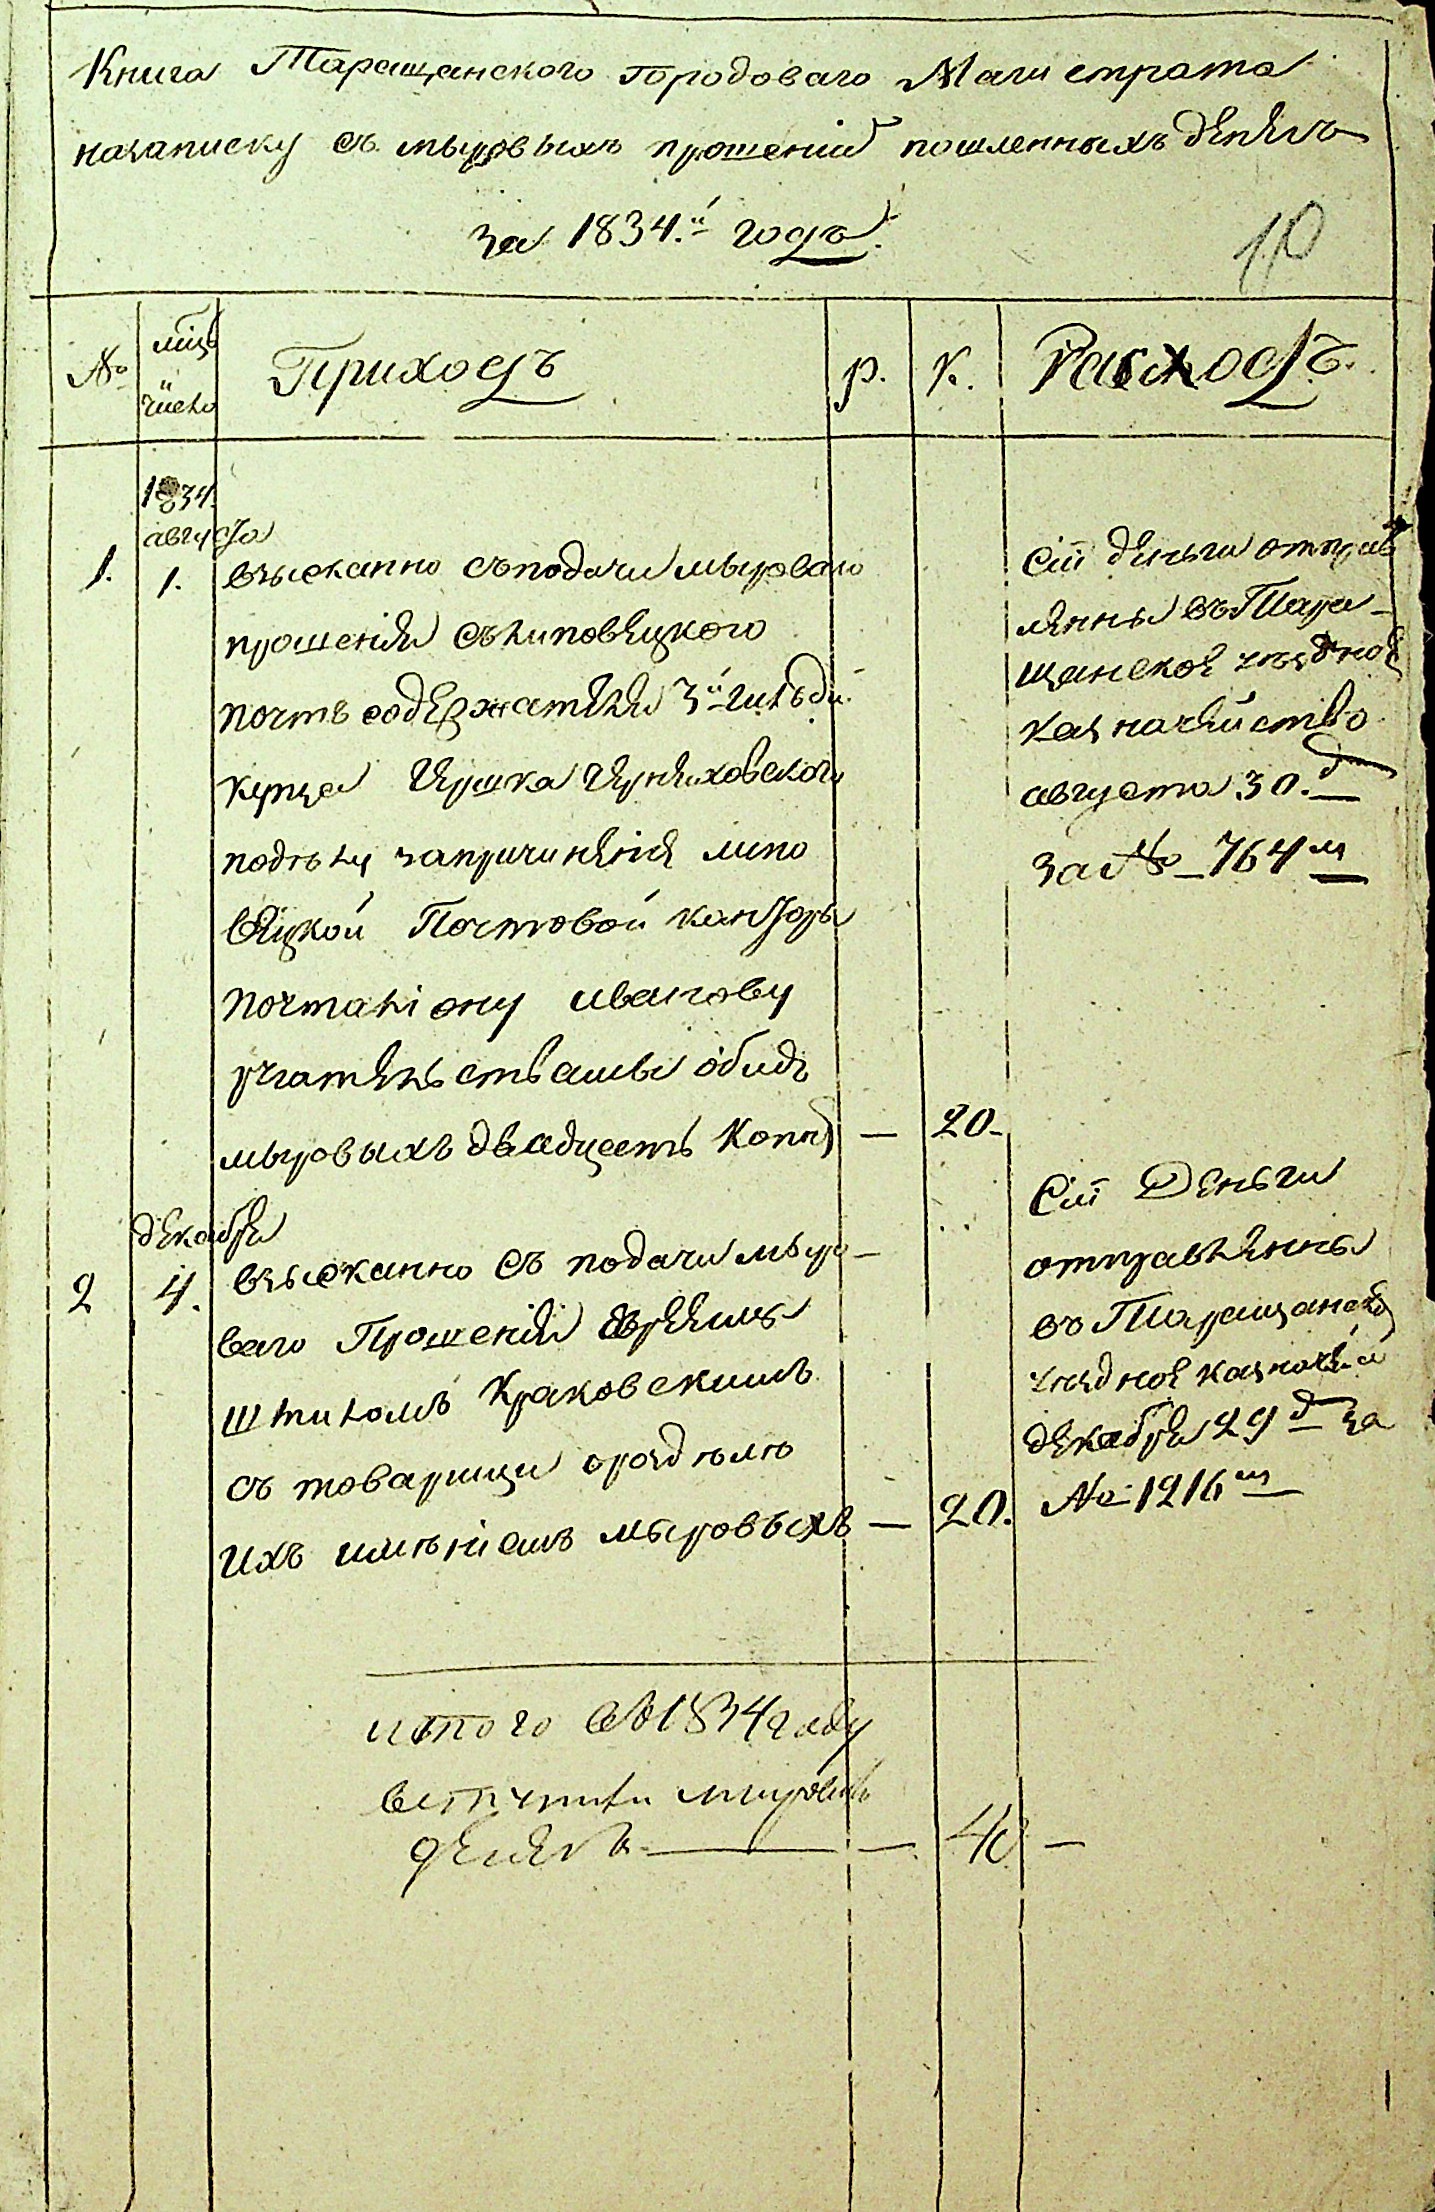 Книга Таращанского Городоваго Магистрата
назаписку съ мыровыхъ прошеній пошленныхъ денегъ
за 1834.й годъ.
10
№ мѣць и число Приходъ р. к. Расходъ.
1834.
августа
1. 1. взысканно съподачи мыроваго
прошенія съЛиповецкого
почтъ содержателя 3й гильдіи
купца Гершка Черняховского
подѣлу запричиненія липо
вецкой Почтовой канторы
почталіону иванову
ругательствамы обидъ
мыровыхъ двадцеть копѣ — 20-
Сіи деньги отправ
ленны въТара-
щанское уездное
казначейство
августа 30. д
за № 764м
декабря
2 4. взысканно съ подачи мыро-
ваго Прошенія
Краковскимъ
съ товарищи оразделѣ
ихъ имѣніемъ мыровыхъ — 20.
Сіи Деньги
отправленны
въ Таращанско
уездное казначей
декабря 29 д за
№ 1216м
итого въ 1834 году
вступило мировыхъ
денегъ — 40 —